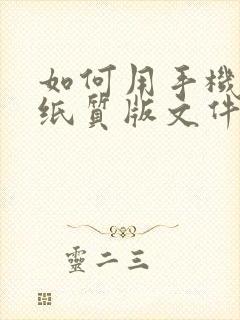 如何用手機
纸質版文件
靈二三